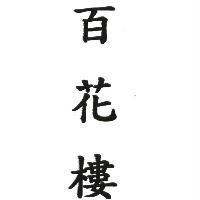 百花樓